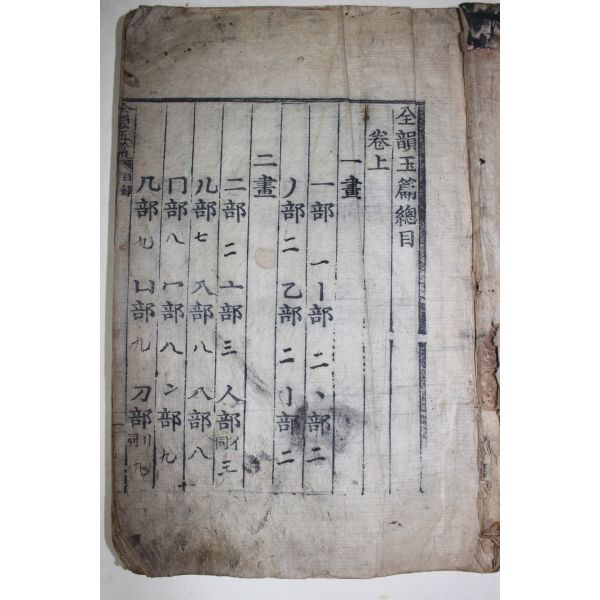 全韻玉篇總目
卷上
一畫
一部 一 丨部 二 丶部 二
丿部 二 乙部 二 亅部 二
二畫
二部 二 亠部 三 人部 亻同 三
儿部 七 入部 八 八部 八
冂部 八 冖部 八 冫部 九
几部 九 凵部 九 刀部 刂同 九
全韻玉篇 目錄 一